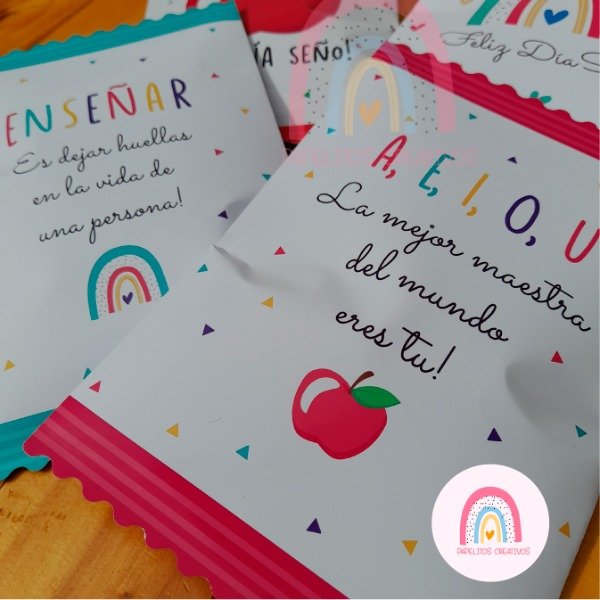 ENSEÑAR
Es dejar huellas
en la vida de
una persona!
ÍA SEÑO!
Feliz Día S
PAPELITOS CREATIVOS
A, E, I, O, U
La mejor maestra
del mundo
eres tu!
PAPELITOS CREATIVOS